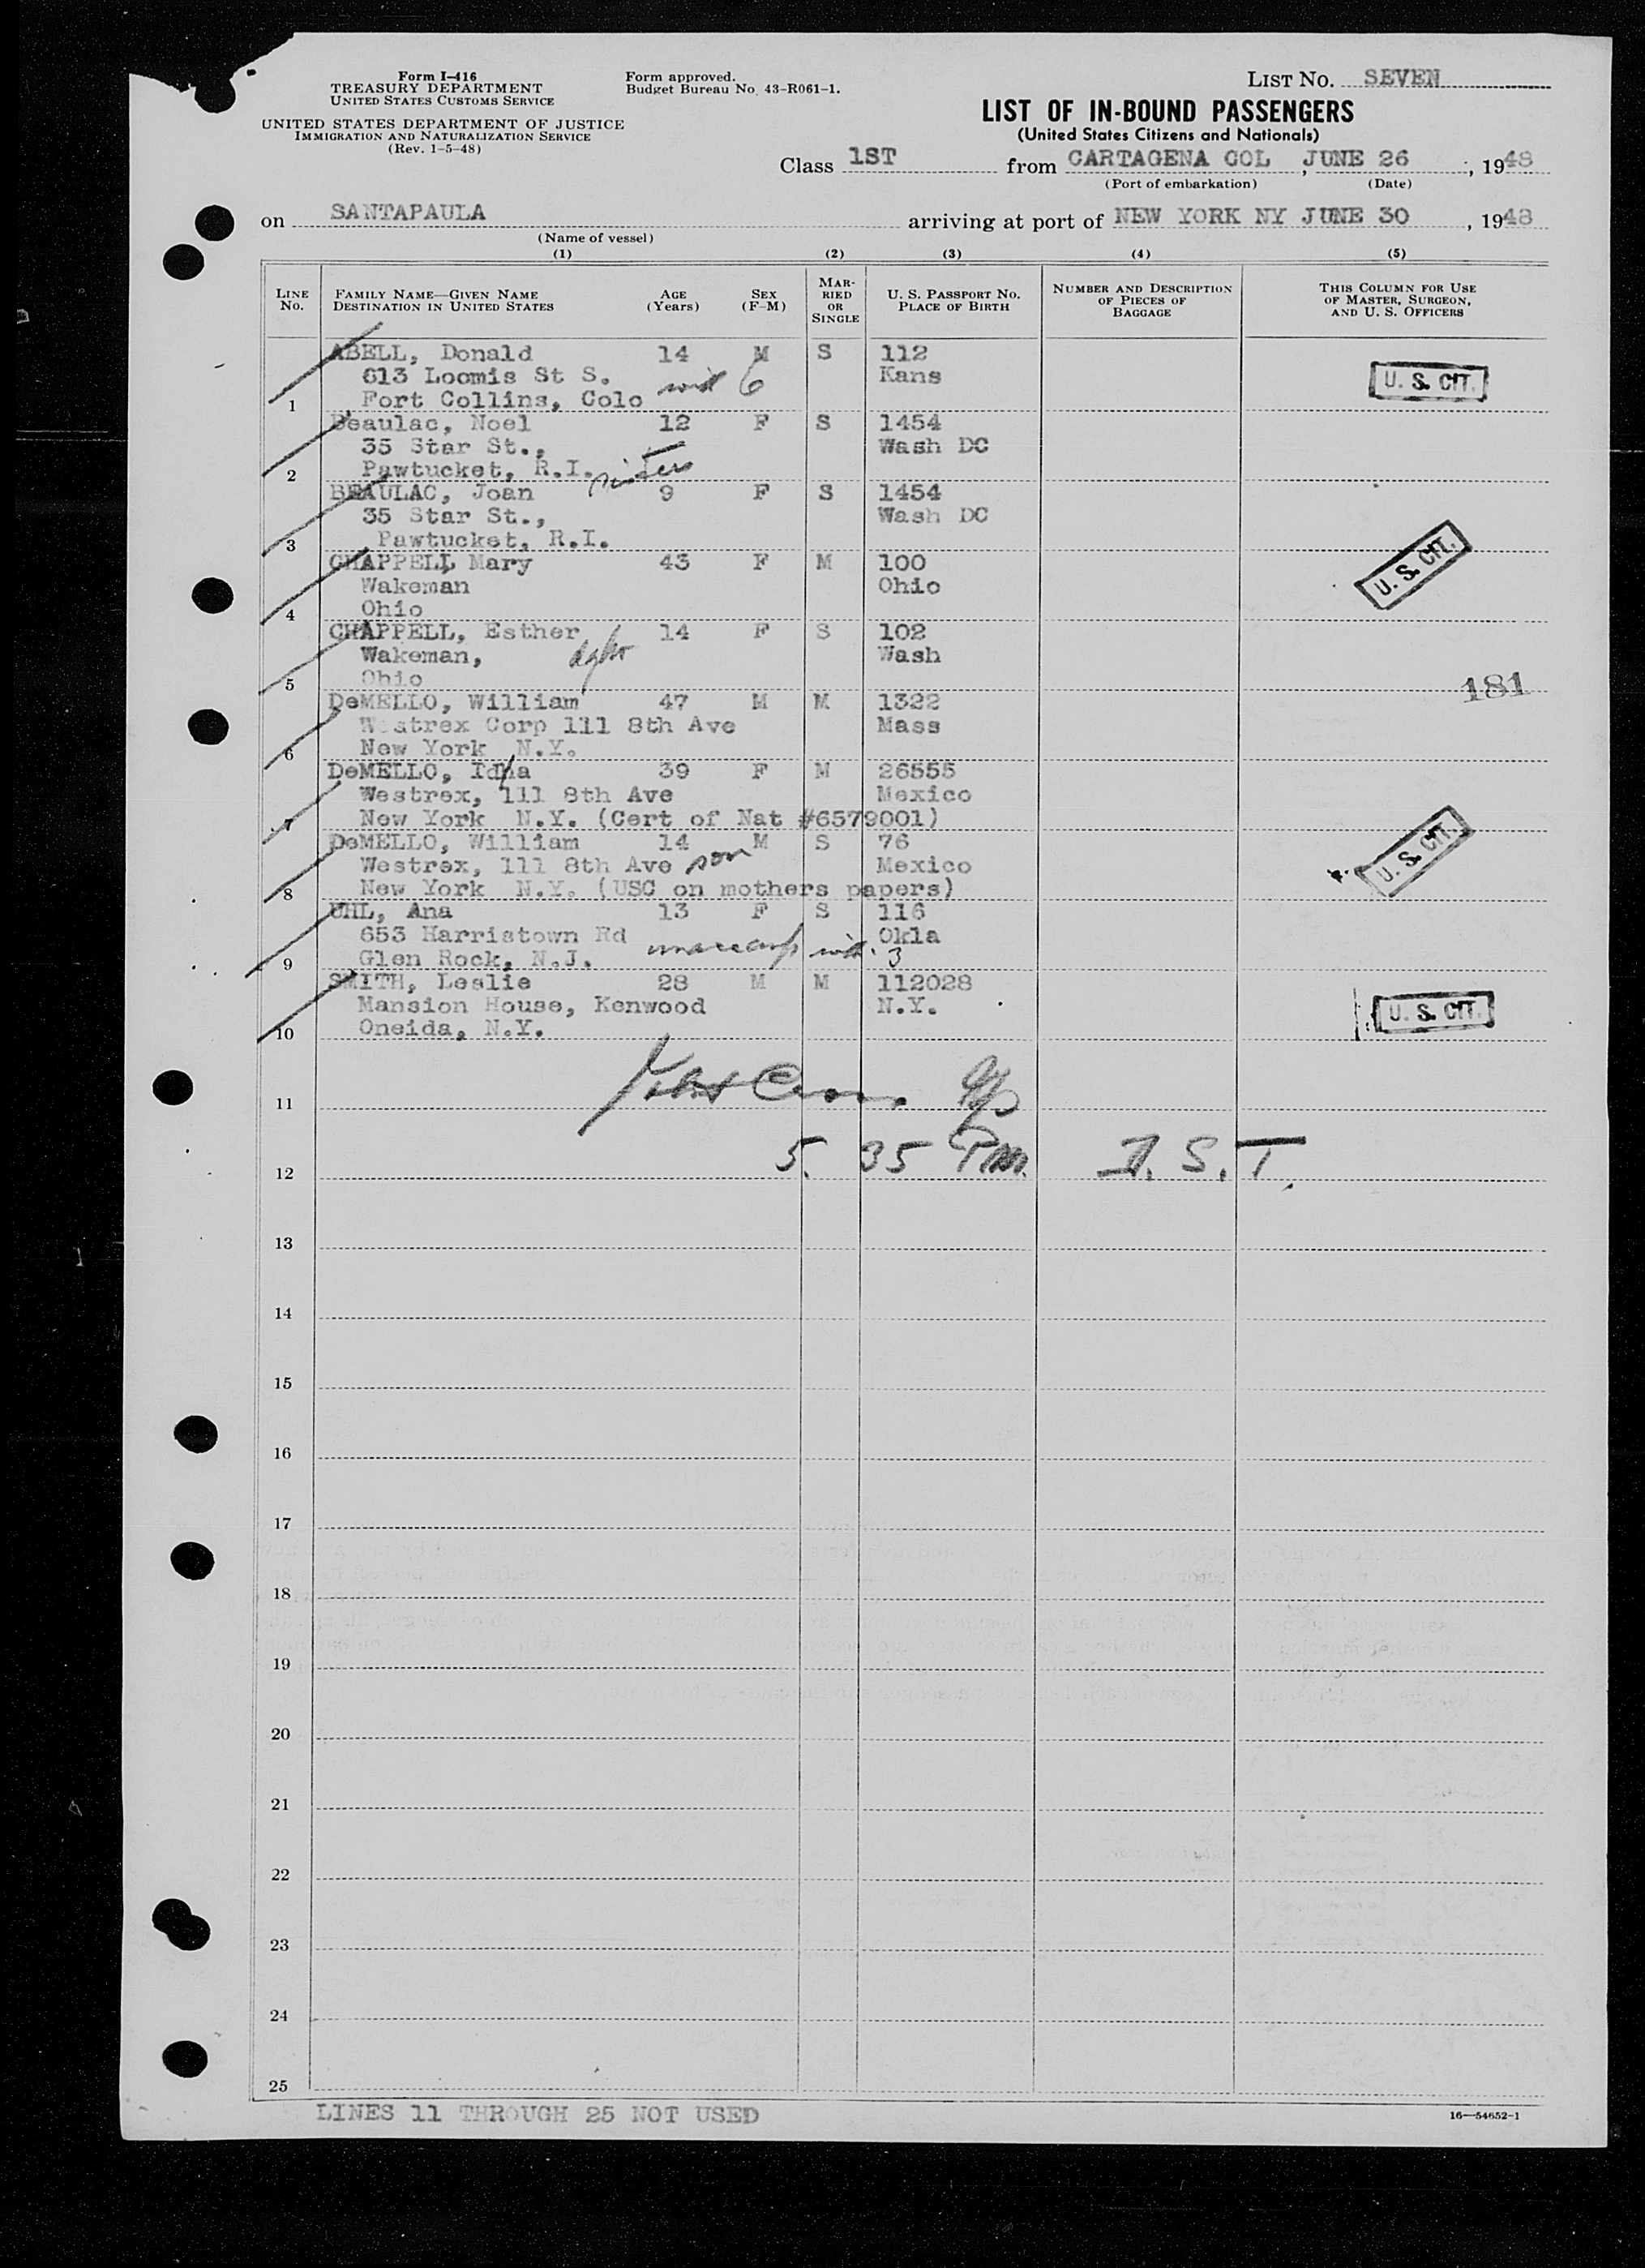 Form I-416
TREASURY DEPARTMENT
UNITED STATES CUSTOMS SERVICE
UNITED STATES DEPARTMENT OF JUSTICE
IMMIGRATION AND NATURALIZATION SERVICE
(Rev. 1-5-48)
Form approved.
Budget Bureau No. 43-R061-1.
LIST No. SEVEN
LIST OF IN-BOUND PASSENGERS
(United States Citizens and Nationals)
Class 1ST from CARTAGENA COL, JUNE 26, 1948
(Port of embarkation) (Date)
on SANTAPAULA arriving at port of NEW YORK NY JUNE 30, 1948
(Name of vessel)
(1) (2) (3) (4) (5)
LINE No. FAMILY NAME—GIVEN NAME DESTINATION IN UNITED STATES AGE (Years) SEX (F-M) MARRIED OR SINGLE U. S. PASSPORT No. PLACE OF BIRTH NUMBER AND DESCRIPTION OF PIECES OF BAGGAGE THIS COLUMN FOR USE OF MASTER, SURGEON, AND U. S. OFFICERS
ABELL, Donald 14 M S 112
613 Loomis St S. with 6 Kans U. S. CIT.
1 Fort Collins, Colo
Beaulac, Noel 12 F S 1454
35 Star St., Wash DC
2 Pawtucket, R.I. sisters
BEAULAC, Joan 9 F S 1454
35 Star St., Wash DC
3 Pawtucket, R.I.
CHAPPELL, Mary 43 F M 100
Wakeman Ohio U. S. CIT.
4 Ohio
CHAPPELL, Esther 14 F S 102
Wakeman, Wash
5 Ohio 181
DeMELLO, William 47 M M 1322
Westrex Corp 111 8th Ave Mass
6 New York N.Y.
DeMELLO, Idha 39 F M 26555
Westrex, 111 8th Ave Mexico
7 New York N.Y. (Cert of Nat #6579001)
DeMELLO, William 14 M S 76
Westrex, 111 8th Ave son Mexico U. S. CIT.
8 New York N.Y. (USC on mothers papers)
UHL, Ana 13 F S 116
653 Harristown Rd Okla
9 Glen Rock, N.J. with 3
SMITH, Leslie 28 M M 112028
Mansion House, Kenwood N.Y. U. S. CIT.
10 Oneida, N.Y.
11
12 5.35 P.M. D.S.T.
13
14
15
16
17
18
19
20
21
22
23
24
25
LINES 11 THROUGH 25 NOT USED
16—54652-1